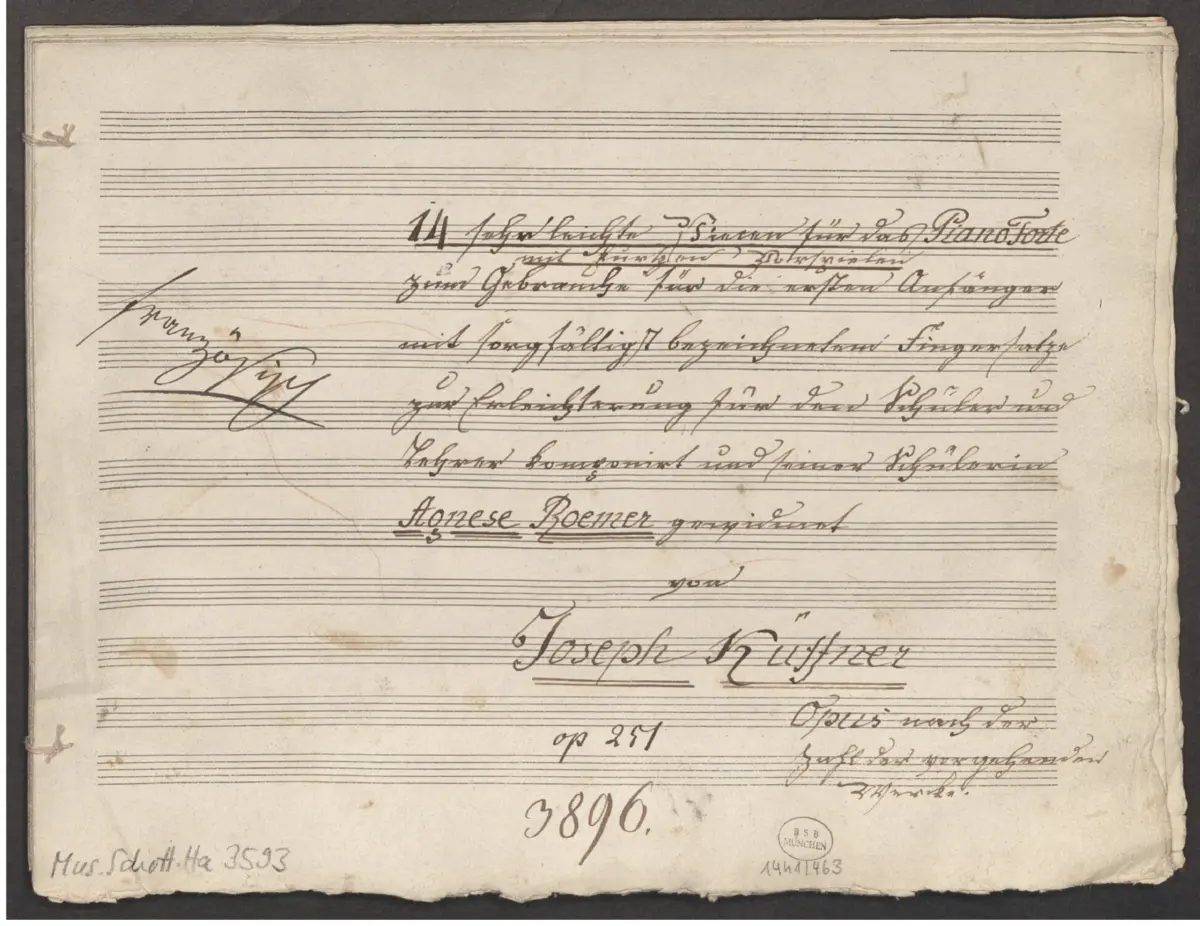 14 sehr leichte Piecen für das Piano Forte
mit kurtzen Vorspielen
zum Gebrauche für die ersten Anfänger
mit sorgfältigst bezeichnetem Fingersatze
zur Erleichterung für den Schüler und
Lehrer komponirt und seiner Schülerin
Agnese Roemer gewidmet
von
Joseph Küffner
französisch
op 251
Opus nach der
Zahl der vorgehenden
Wercke.
3896.
BSB
MÜNCHEN
Mus. Schott. Ha 3593
1441/463